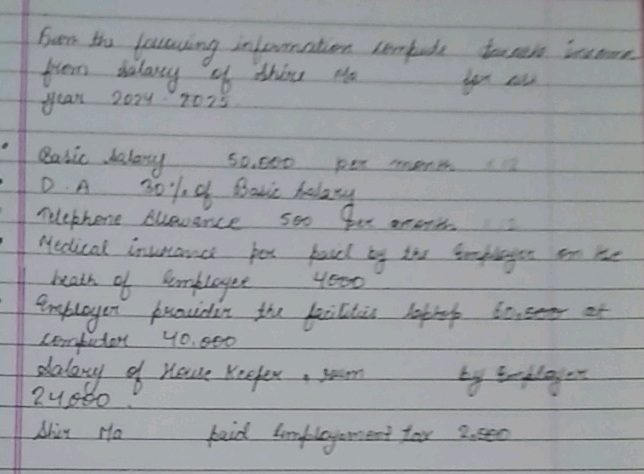 From the following information compute income
from salary of Shire Ma for
year 2024-2025
Basic Salary 50,000 per month
D.A 30% of Basic Salary
Telephone Allowance 500 per month
Medical insurance paid by the Employer on the
heath of Employee 4000
Employer provides the facilities laptop at
computer 40,000
Salary of House Keeper by Employer
24,000
Ma paid Employement tax 2,500